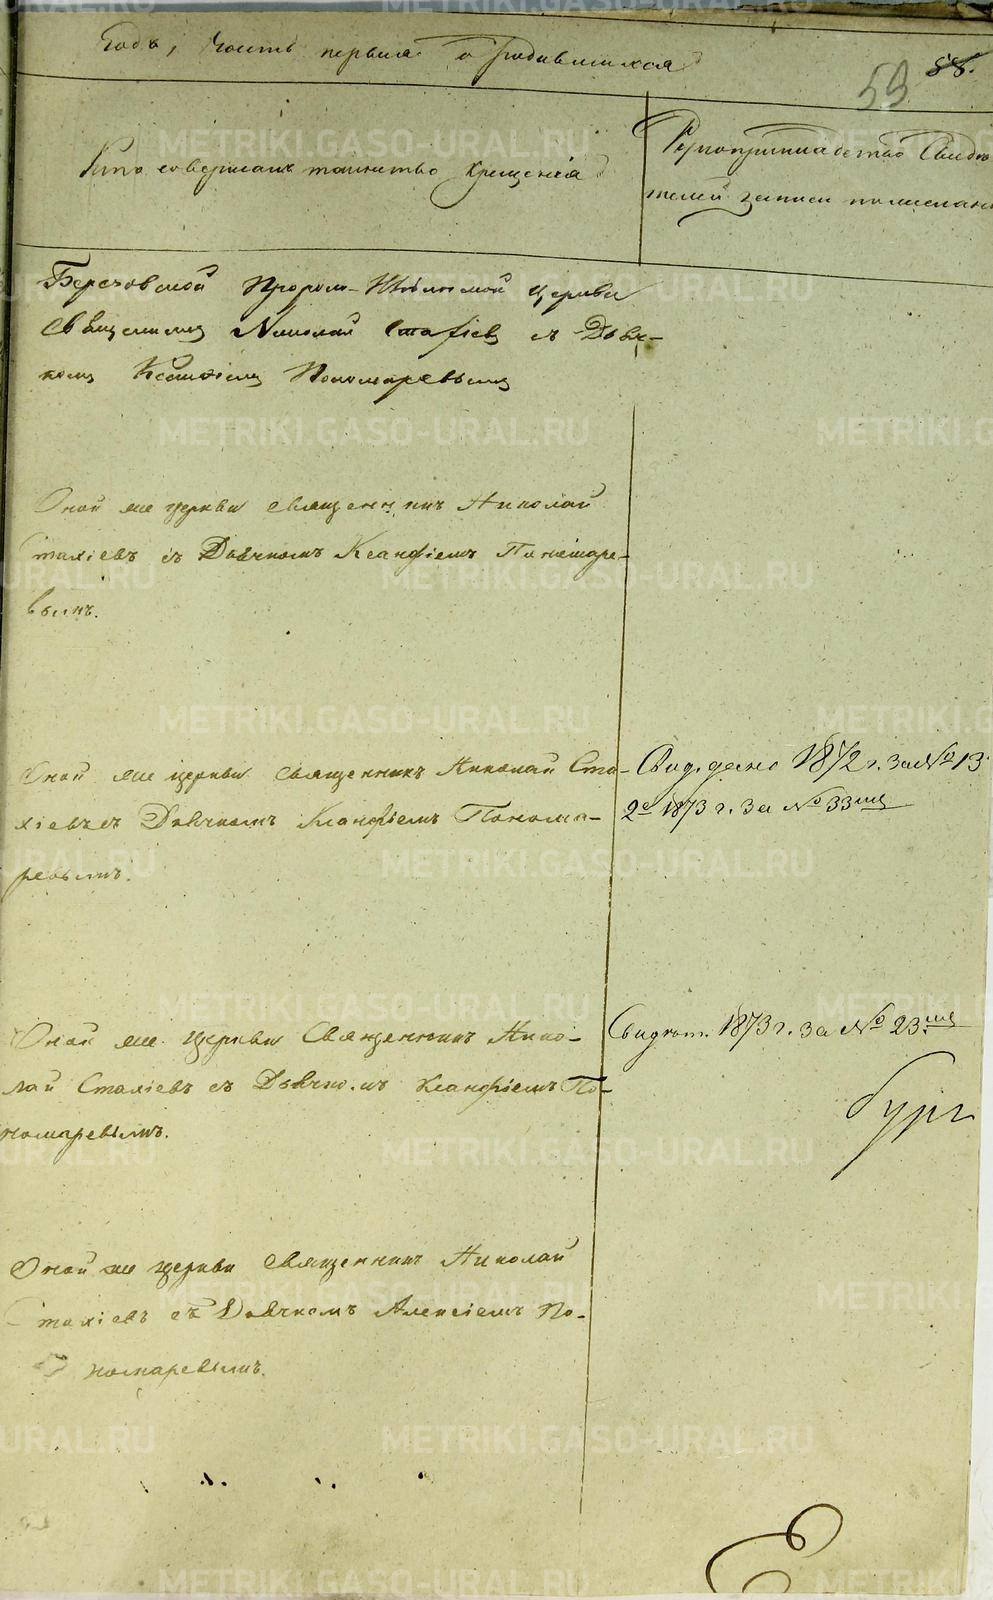 Годъ, Часть первая о родившихся
59 58.
Кто совершалъ таинство крещенія
Рукоприкладство Свидѣ-
телей записи по желанію
Пророко-Ильинской церкви
Священникъ Николай Стахіевъ съ Дьяч-
комъ Ксанфіемъ Пономаревымъ
Оной же церкви священникъ Николай
Стахіевъ съ Дьячкомъ Ксанфіемъ Пономаре-
вымъ.
Оной же церкви священникъ Николай Ста-
хіевъ съ Дьячкомъ Ксанфіемъ Понома-
ревымъ.
Свид. дано 1872 г. за № 13
2е 1873 г. за № 33мъ
Оной же церкви Священникъ Нико-
лай Стахіевъ съ Дьячкомъ Ксанфіемъ По-
номаревымъ.
1873 г. за № 23мъ
Оной же церкви священникъ Николай
Стахіевъ съ Дьячкомъ Алексіемъ По-
номаревымъ.
METRIKI.GASO-URAL.RU